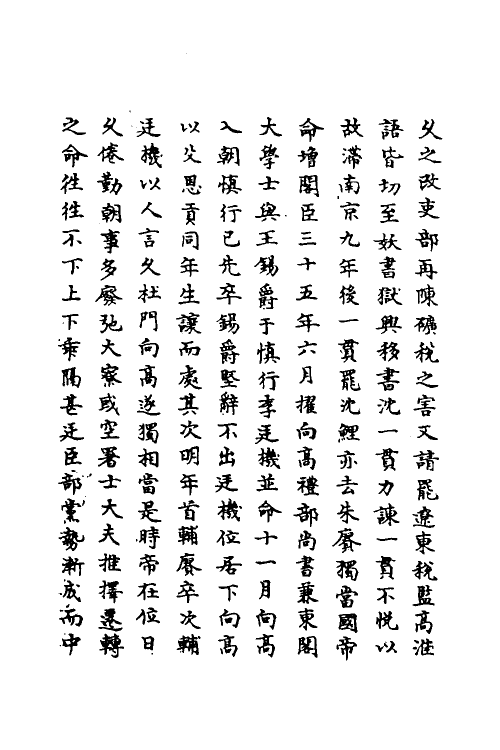 久之改吏部再陳礦稅之害又請罷遼東稅監高淮
語皆切至妖書獄興移書沈一貫力諫一貫不悅以
故滯南京九年後一貫罷沈鯉亦去朱賡獨當國帝
命增閣臣三十五年六月擢向高禮部尚書兼東閣
大學士與王錫爵于慎行李廷機並命十一月向高
入朝慎行已先卒錫爵堅辭不出廷機位居下向高
以父恩貢同年生讓而處其次明年首輔賡卒次輔
廷機以人言久杜門向高遂獨相當是時帝在位日
久倦勤朝事多廢弛大察或空署士大夫推擇遷轉
之命往往不下上下乖隔甚廷臣部黨勢漸成而中